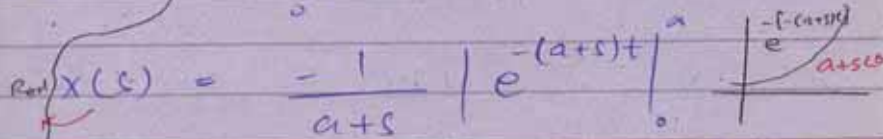 X(s) = - 1/(a+s) | e^{-(a+s)t} |_0
e^{-[-(a+s)t]}
a+s<0